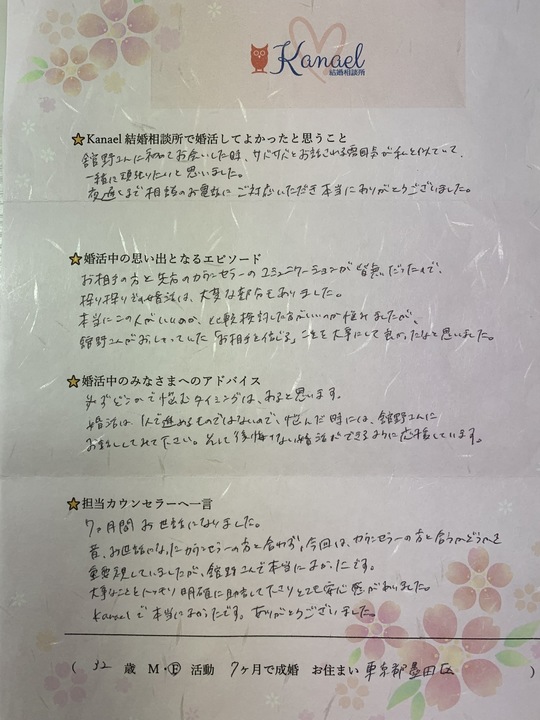 Kanael
結婚相談所
Kanael 結婚相談所で婚活してよかったと思うこと
舘野さんに初めてお会いした時、サバサバとお話される雰囲気が私と似ていて、
一緒に頑張りたいと思いました。
夜遅くまで相談のお電話にご対応いただき本当にありがとうございました。
婚活中の思い出となるエピソード
お相手の方と先方のカウンセラーのコミュニケーションが皆無だったので、
探り探りの婚活は、大変な部分もありました。
本当にこの人がいいのか、と比較検討した方がいいのか悩みましたが、
舘野さんがおしゃっていた「お相手と信じる」ことを大事にして良かったなと思いました。
婚活中のみなさまへのアドバイス
必ずどこかで悩むタイミングは、あると思います。
婚活は1人で進めるものではないので、悩んだ時には、舘野さんに
お話ししてみて下さい。そして後悔のない婚活ができるように応援しています。
担当カウンセラーへ一言
7ヶ月間お世話になりました。
昔、お世話になったカウンセラーの方と合わず、今回は、カウンセラーの方と合うかどうかを
重要視していましたが、舘野さんで本当によかったです。
大事なことをハッキリ明確に助言して下さりとても安心感がありました。
Kanaelで本当によかったです。ありがとうございました。
( 32 歳 M・Ⓕ 活動 7ヶ月で成婚 お住まい 東京都墨田区 )